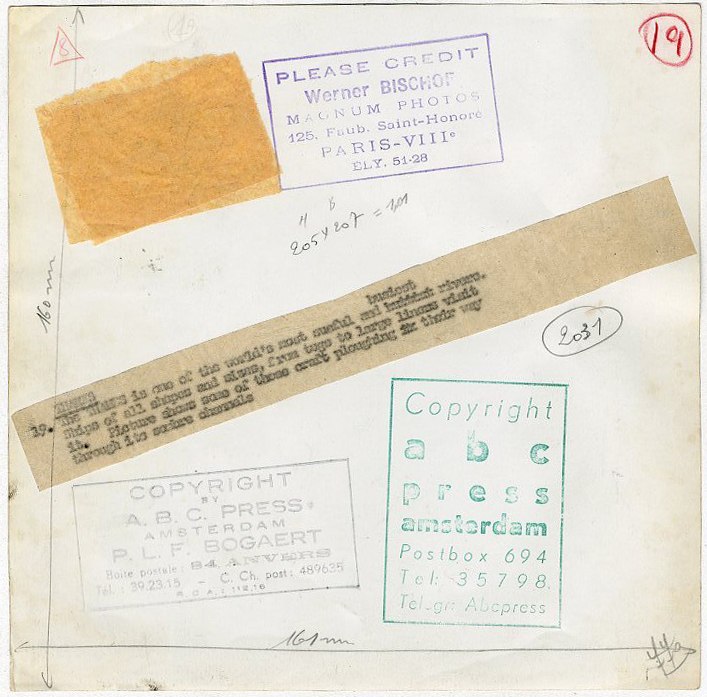 8
19
PLEASE CREDIT
Werner BISCHOF
MAGNUM PHOTOS
125, Faub. Saint-Honoré
PARIS-VIIIe
ELY. 51-28
H B
205 x 207 = 1,01
160 mm
2031
THAMES
busiest
19. The THAMES is one of the world's most useful and rivers.
Ships of all shapes and sizes, from tugs to large liners visit
it. Picture shows some of these craft ploughing their way
through its sombre channels
Copyright
abc
press
amsterdam
Postbox 694
Tel: 35798
Telegr: Abcpress
COPYRIGHT
BY
A. B. C. PRESS
AMSTERDAM
P. L. F. BOGAERT
Boite postale: 84 ANVERS
Tél.: 39.23.15 - C. Ch. post: 489635
161 mm